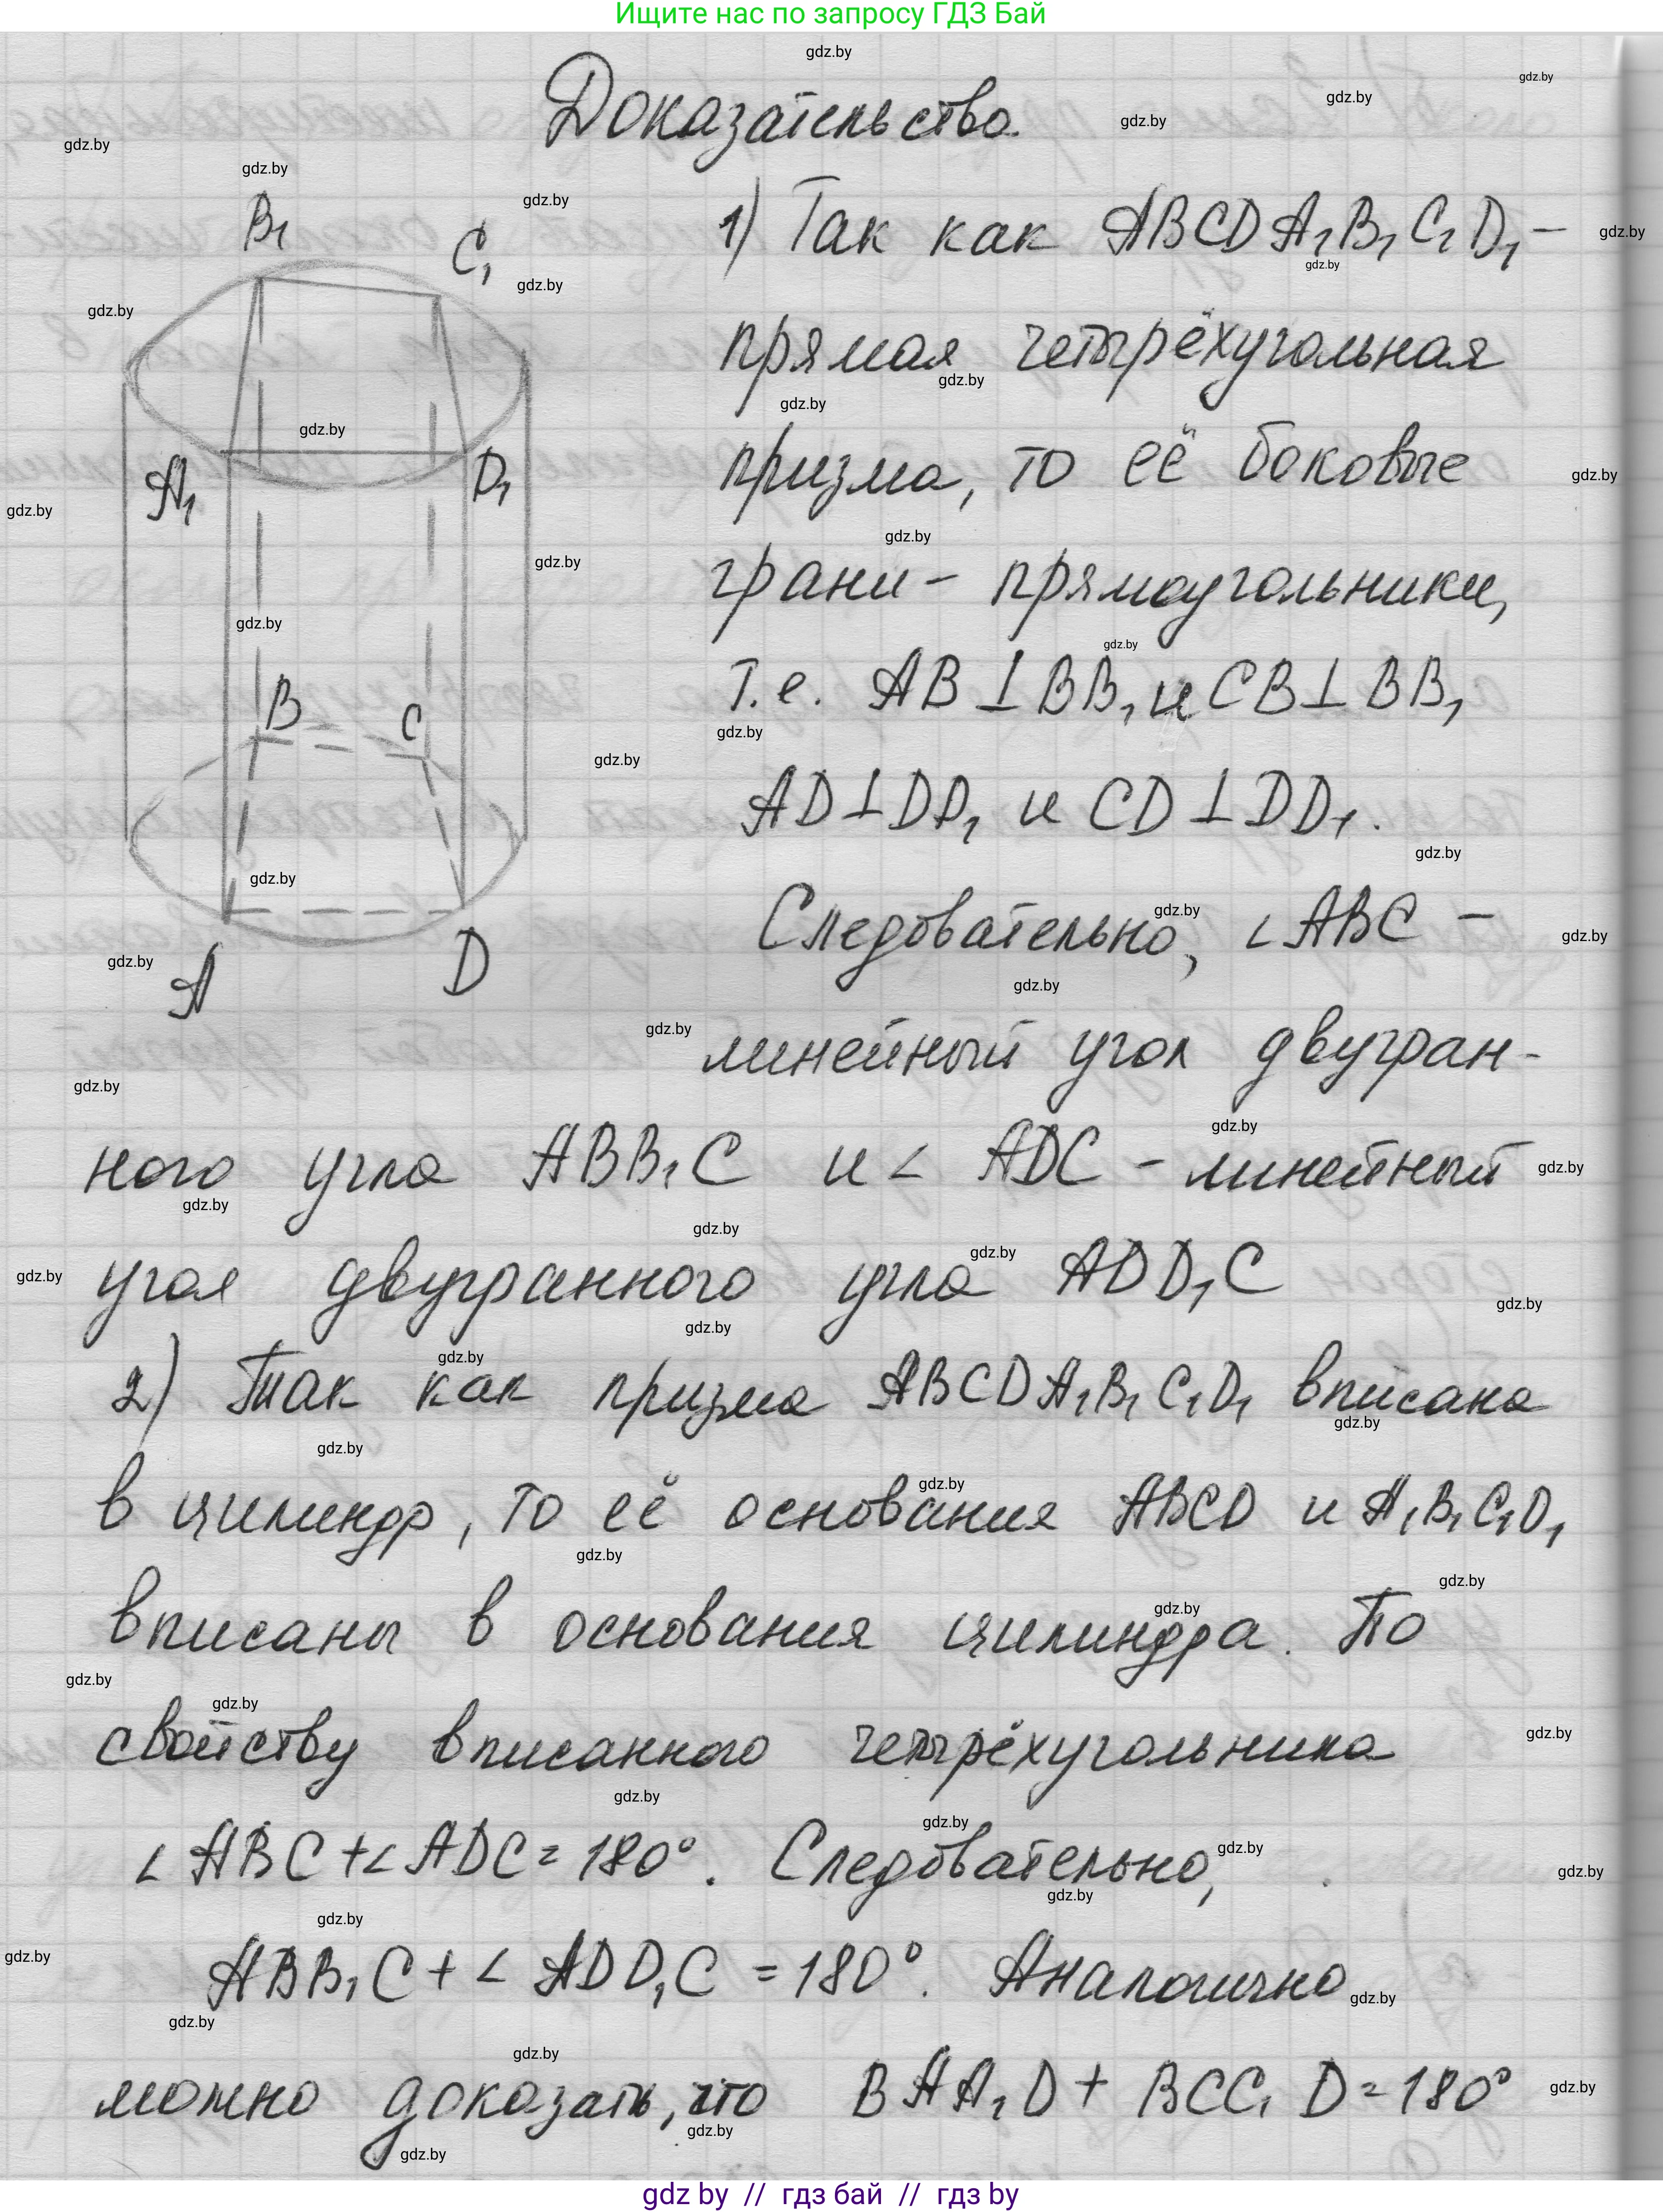 Ищите нас по запросу ГДЗ Бай
Доказательство.
B₁
C₁
A₁
D₁
B
C
A
D
1) Так как ABCDA₁B₁C₁D₁ –
прямая четырёхугольная
призма, то её боковые
грани – прямоугольники,
т.е. AB ⊥ BB₁ и CB ⊥ BB₁
AD ⊥ DD₁ и CD ⊥ DD₁.
Следовательно, ∠ABC –
линейный угол двугран-
ного угла ABB₁C и ∠ ADC – линейный
угол двугранного угла ADD₁C
2) Так как призма ABCDA₁B₁C₁D₁ вписана
в цилиндр, то её основания ABCD и A₁B₁C₁D₁
вписаны в основания цилиндра. По
свойству вписанного четырёхугольника
∠ABC + ∠ADC = 180°. Следовательно,
ABB₁C + ∠ ADD₁C = 180°. Аналогично
можно доказать, что BAA₁D + BCC₁D = 180°
gdz by // гдз бай // гдз by